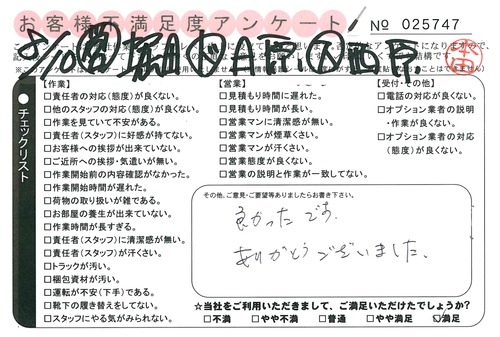 お客様不満足度アンケート
No 025747
チェックリスト
【作業】
□責任者の対応(態度)が良くない。
□他のスタッフの対応(態度)が良くない。
□作業を見ていて不安がある。
□責任者(スタッフ)に好感が持てない。
□お客様への挨拶が出来ていない。
□ご近所への挨拶・気遣いが無い。
□作業開始前の内容確認がなかった。
□作業開始時間が遅れた。
□荷物の取り扱いが雑である。
□お部屋の養生が出来ていない。
□作業時間が長すぎる。
□責任者(スタッフ)に清潔感が無い。
□責任者(スタッフ)が汗くさい。
□トラックが汚い。
□梱包資材が汚い。
□運転が不安(下手)である。
□靴下の履き替えをしてない。
□スタッフにやる気がみられない。
【営業】
□見積もり時間に遅れた。
□見積もり時間が長い。
□営業マンに清潔感が無い。
□営業マンが煙草くさい。
□営業マンが汗くさい。
□営業態度が良くない。
□営業の説明と作業が一致してない。
【受付・その他】
□電話の対応が良くない。
□オプション業者の説明
・作業が良くない。
□オプション業者の対応
(態度)が良くない。
その他、ご意見・ご要望等ありましたらお書き下さい。
良かったです。
ありがとうございました。
☆当社をご利用いただきまして、ご満足いただけたでしょうか?
□不満 □やや不満 □普通 □やや満足 ☑満足